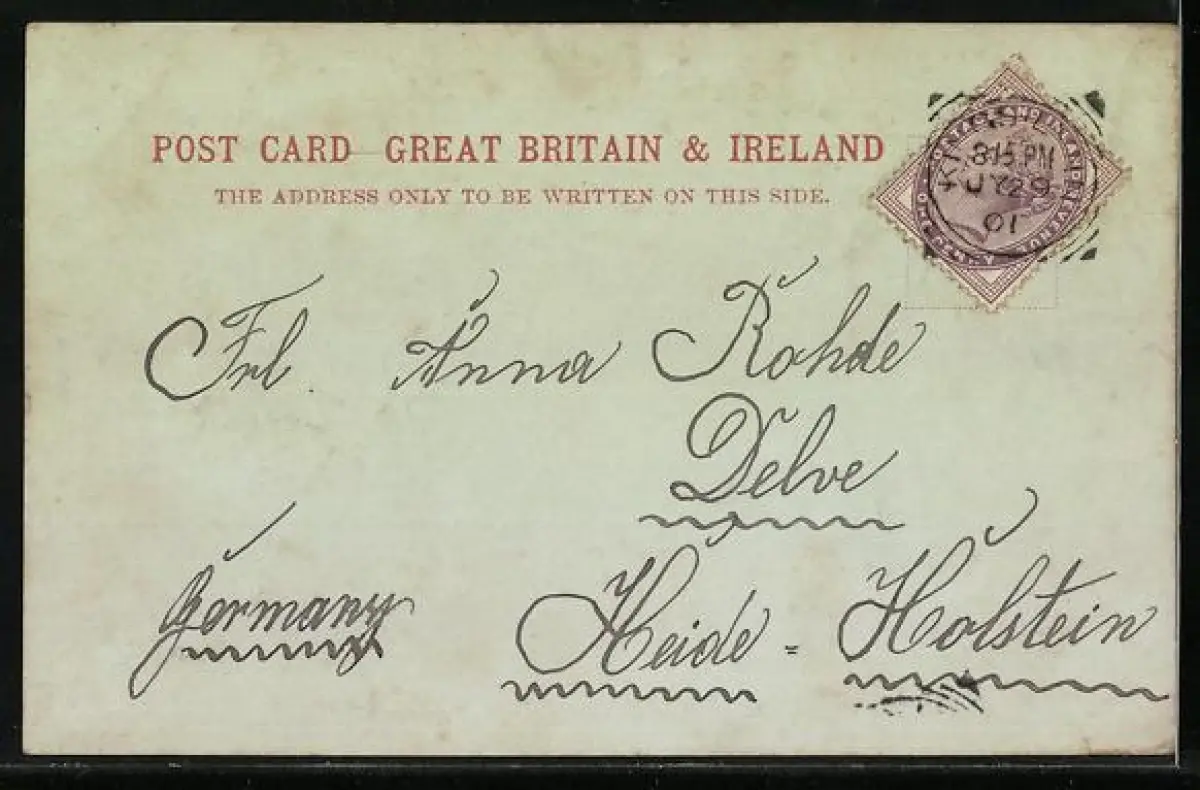 POST CARD GREAT BRITAIN & IRELAND
THE ADDRESS ONLY TO BE WRITTEN ON THIS SIDE.
8.15 PM
JY 29
01
ONE PENNY
Frl. Anna Rohde
Delve
Germany
Heide = Holstein